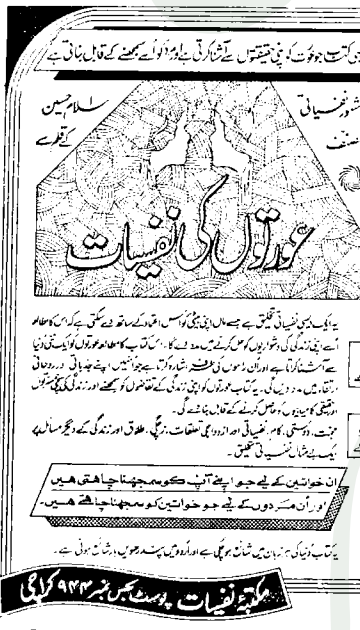 کتاب جو عورت کو اپنی حقیقتوں سے آشنا کرتی ہے اور مرد کو اسے سمجھنے کے قابل بناتی ہے
مشہور نفسیاتی
مصنف
اسلام حسین
کے قلم سے
عورتوں کی نفسیات
یہ ایک ایسی نفسیاتی تخلیق ہے جسے ماں اپنی بیٹی کو اس اعتماد کے ساتھ دے سکتی ہے کہ اس کا مطالعہ
اُسے اپنی زندگی کی دشواریوں کو حل کرنے میں مدد دے گا۔ اس کتاب کا مطالعہ عورتوں کو ایک نئی دنیا
سے آشنا کراتا ہے اور ان زینوں کی طرف اشارہ کرتا ہے جو انہیں اپنے جذباتی و روحانی
ارتقاء میں مدد دیں گی۔ یہ کتاب عورتوں کو اپنی زندگی کے تقاضوں کو سمجھنے اور زندگی کی سچی مسرتوں
اور حقیقی کامیابیوں کو حاصل کرنے کے قابل بنا دے گی۔
محبت، دوستی، کام، نفسیاتی امداد، ازدواجی تعلقات، زچگی، طلاق اور زندگی کے دیگر مسائل پر
ایک بے مثال نفسیاتی تخلیق۔
ان خواتین کے لیے جو اپنے آپ کو سمجھنا چاہتی ہیں
اور اُن مردوں کے لیے جو خواتین کو سمجھنا چاہتے ہیں۔
یہ کتاب دُنیا کی ہر زبان میں شائع ہو چکی ہے اور اُردو میں پندرھویں بار شائع ہوئی ہے۔
مکتبۂ نفسیات پوسٹ بکس نمبر ۹۴۴ کراچی